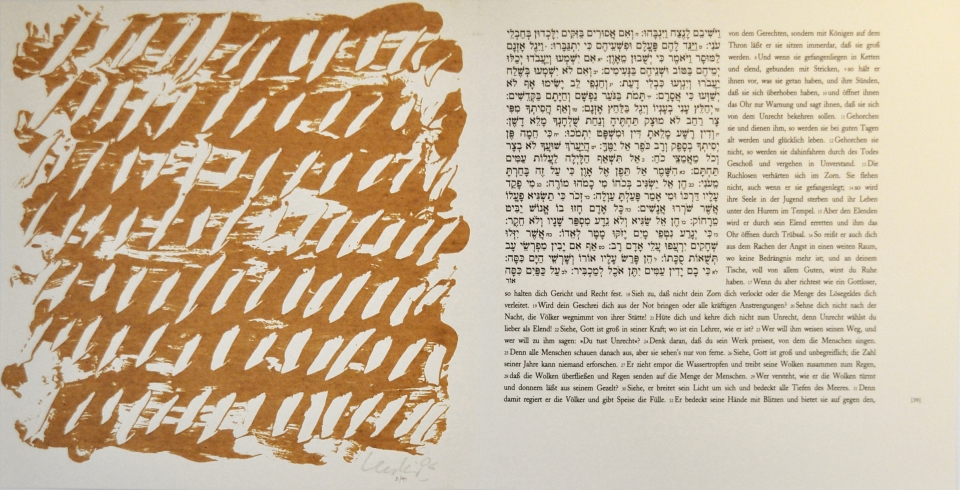 וַיֹּשִׁיבֵם לָנֶצַח וַיִּגְבָּהוּ: ח וְאִם אֲסוּרִים בַּזִּקִּים יִלָּכְדוּן בְּחַבְלֵי
עֹנִי: ט וַיַּגֵּד לָהֶם פָּעֳלָם וּפִשְׁעֵיהֶם כִּי יִתְגַּבָּרוּ: י וַיִּגֶל אָזְנָם
לַמּוּסָר וַיֹּאמֶר כִּי יְשֻׁבוּן מֵאָוֶן: יא אִם יִשְׁמְעוּ וְיַעֲבֹדוּ יְכַלּוּ
יְמֵיהֶם בַּטּוֹב וּשְׁנֵיהֶם בַּנְּעִימִים: יב וְאִם לֹא יִשְׁמְעוּ בְּשֶׁלַח
יַעֲבֹרוּ וְיִגְוְעוּ כִּבְלִי דָעַת: יג וְחַנְפֵי לֵב יָשִׂימוּ אָף לֹא
יְשַׁוְּעוּ כִּי אֲסָרָם: יד תָּמֹת בַּנֹּעַר נַפְשָׁם וְחַיָּתָם בַּקְּדֵשִׁים:
טו יְחַלֵּץ עָנִי בְעָנְיוֹ וְיִגֶל בַּלַּחַץ אָזְנָם: טז וְאַף הֲסִיתְךָ מִפִּי
צָר רַחַב לֹא מוּצָק תַּחְתֶּיהָ וְנַחַת שֻׁלְחָנְךָ מָלֵא דָשֶׁן:
יז וְדִין רָשָׁע מָלֵאתָ דִּין וּמִשְׁפָּט יִתְמֹכוּ: יח כִּי חֵמָה פֶּן
יְסִיתְךָ בְסָפֶק וְרָב כֹּפֶר אַל יַטֶּךָּ: יט הֲיַעֲרֹךְ שׁוּעֲךָ לֹא בְצָר
וְכֹל מַאֲמַצֵּי כֹחַ: כ אַל תִּשְׁאַף הַלָּיְלָה לַעֲלוֹת עַמִּים
תַּחְתָּם: כא הִשָּׁמֶר אַל תֵּפֶן אֶל אָוֶן כִּי עַל זֶה בָּחַרְתָּ
מֵעֹנִי: כב הֶן אֵל יַשְׂגִּיב בְּכֹחוֹ מִי כָמֹהוּ מוֹרֶה: כג מִי פָקַד
עָלָיו דַּרְכּוֹ וּמִי אָמַר פָּעַלְתָּ עַוְלָה: כד זְכֹר כִּי תַשְׂגִּיא פָעֳלוֹ
אֲשֶׁר שֹׁרְרוּ אֲנָשִׁים: כה כָּל אָדָם חָזוּ בוֹ אֱנוֹשׁ יַבִּיט
מֵרָחוֹק: כו הֶן אֵל שַׂגִּיא וְלֹא נֵדָע מִסְפַּר שָׁנָיו וְלֹא חֵקֶר:
כז כִּי יְגָרַע נִטְפֵי מָיִם יָזֹקּוּ מָטָר לְאֵדוֹ: כח אֲשֶׁר יִזְּלוּ
שְׁחָקִים יִרְעֲפוּ עֲלֵי אָדָם רָב: כט אַף אִם יָבִין מִפְרְשֵׂי עָב
תְּשֻׁאוֹת סֻכָּתוֹ: ל הֵן פָּרַשׂ עָלָיו אוֹרוֹ וְשָׁרְשֵׁי הַיָּם כִּסָּה:
לא כִּי בָם יָדִין עַמִּים יִתֶּן אֹכֶל לְמַכְבִּיר: לב עַל כַּפַּיִם כִּסָּה
אוֹר
von dem Gerechten, sondern mit Königen auf dem
Thron läßt er sie sitzen immerdar, daß sie groß
werden. 8 Und wenn sie gefangenliegen in Ketten
und elend, gebunden mit Stricken, 9 so hält er
ihnen vor, was sie getan haben, und ihre Sünden,
daß sie sich überhoben haben, 10 und öffnet ihnen
das Ohr zur Warnung und sagt ihnen, daß sie sich
von dem Unrecht bekehren sollen. 11 Gehorchen
sie und dienen ihm, so werden sie bei guten Tagen
alt werden und glücklich leben. 12 Gehorchen sie
nicht, so werden sie dahinfahren durch des Todes
Geschoß und vergehen in Unverstand. 13 Die
Ruchlosen verhärten sich im Zorn. Sie flehen
nicht, auch wenn er sie gefangenlegt; 14 so wird
ihre Seele in der Jugend sterben und ihr Leben
unter den Hurern im Tempel. 15 Aber den Elenden
wird er durch sein Elend erretten und ihm das
Ohr öffnen durch Trübsal. 16 So reißt er auch dich
aus dem Rachen der Angst in einen weiten Raum,
wo keine Bedrängnis mehr ist; und an deinem
Tische, voll von allem Guten, wirst du Ruhe
haben. 17 Wenn du aber richtest wie ein Gottloser,
so halten dich Gericht und Recht fest. 18 Sieh zu, daß nicht dein Zorn dich verlockt oder die Menge des Lösegeldes dich
verleitet. 19 Wird dein Geschrei dich aus der Not bringen oder alle kräftigen Anstrengungen? 20 Sehne dich nicht nach der
Nacht, die Völker wegnimmt von ihrer Stätte! 21 Hüte dich und kehre dich nicht zum Unrecht, denn Unrecht wählst du
lieber als Elend! 22 Siehe, Gott ist groß in seiner Kraft; wo ist ein Lehrer, wie er ist? 23 Wer will ihm weisen seinen Weg, und
wer will zu ihm sagen: »Du tust Unrecht«? 24 Denk daran, daß du sein Werk preisest, von dem die Menschen singen.
25 Denn alle Menschen schauen danach aus, aber sie sehen's nur von ferne. 26 Siehe, Gott ist groß und unbegreiflich; die Zahl
seiner Jahre kann niemand erforschen. 27 Er zieht empor die Wassertropfen und treibt seine Wolken zusammen zum Regen,
28 daß die Wolken überfließen und Regen senden auf die Menge der Menschen. 29 Wer versteht, wie er die Wolken türmt
und donnern läßt aus seinem Gezelt? 30 Siehe, er breitet sein Licht um sich und bedeckt alle Tiefen des Meeres. 31 Denn
damit regiert er die Völker und gibt Speise die Fülle. 32 Er bedeckt seine Hände mit Blitzen und bietet sie auf gegen den,